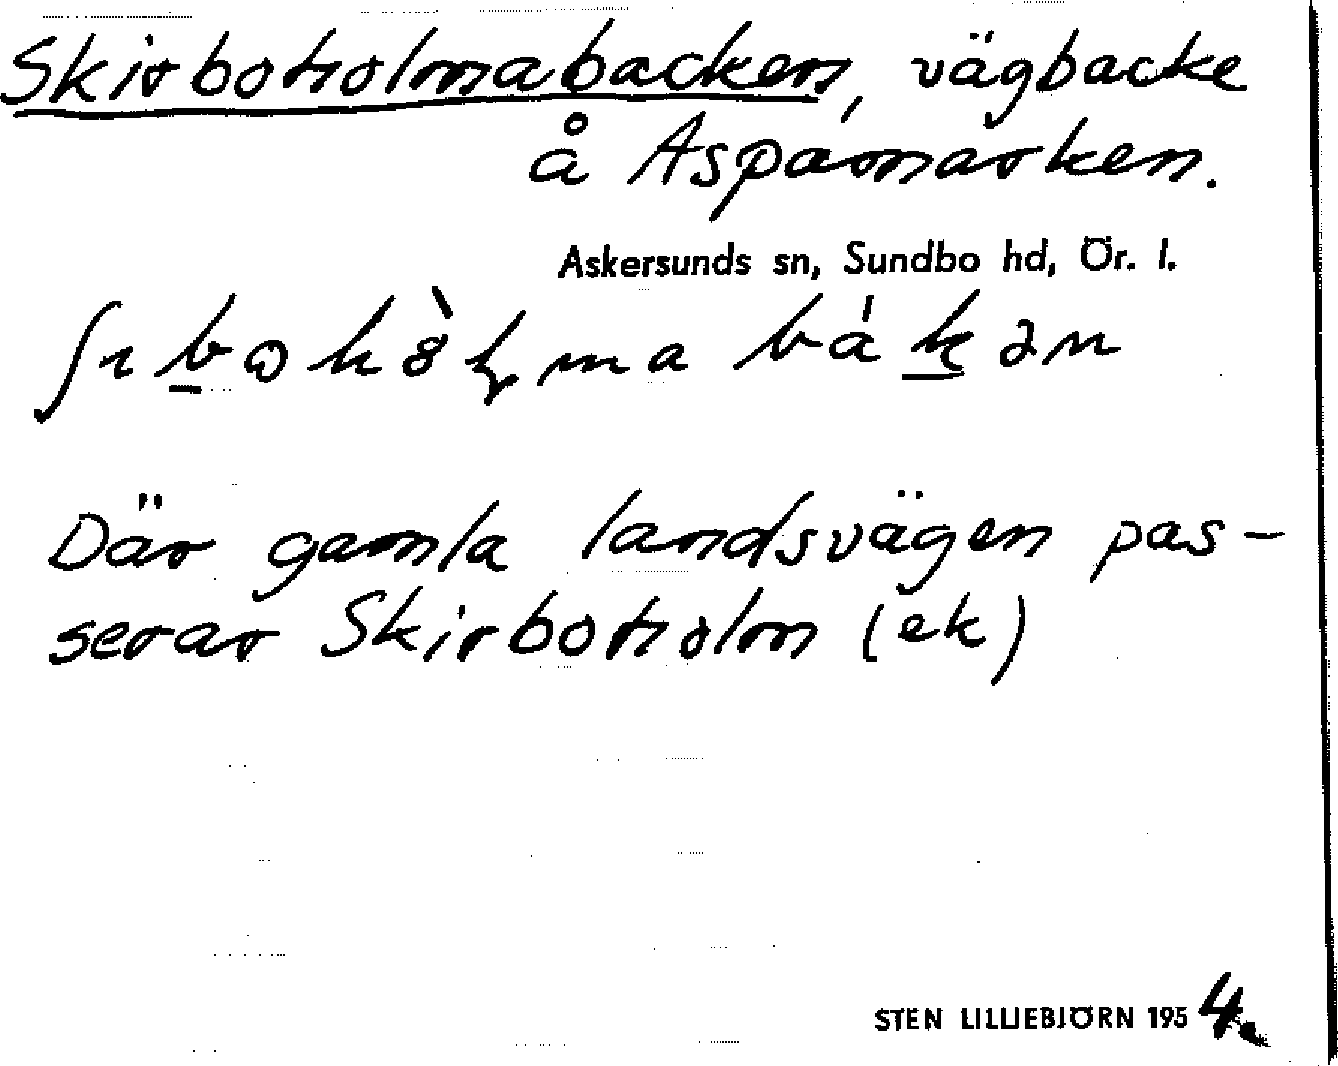 Skirboholmabacken, vägbacke
å Aspamarken.
Askersunds sn, Sundbo hd, Ör. l.
Där gamla landsvägen pas-
serar Skirboholm (ek)
STEN LILLIEBJÖRN 1954.